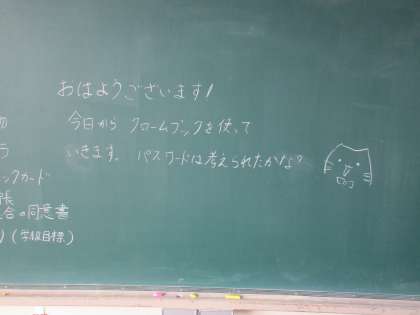 おはようございます!
今日から クロームブックを使って
いきます。 パスワードは考えられたかな?
ックカード
長
会の同意書
)(学級目標)